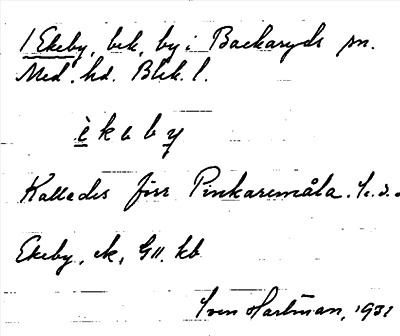 1 Ekeby, bek. by i Backaryds sn.
Med. hd. Blek. l.
è k ɛ b y
Kallades förr Pinkaremåla.
Ekeby, ek, G11. kb
Sven Hartman, 1931